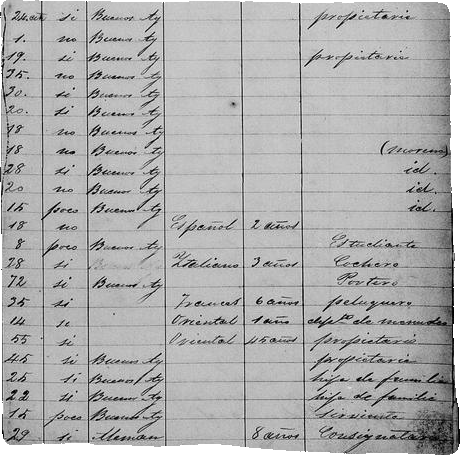 24 si Buenos Ay propietaria
1. no Buenos Ay
19. si Buenos Ay propietaria
35. no Buenos Ay
30. si Buenos Ay
20. si Buenos Ay
18 no Buenos Ay
18 no Buenos Ay (moreno)
28 si Buenos Ay id.
20 no Buenos Ay id.
15 poco Buenos Ay id.
18 no Español 2 años
8 poco Buenos Ay Estudiante
28 si Italiano 3 años Cochero
72 si Buenos Ay Portero
35 si Frances 6 años peluquero
14 si Oriental 1 año de menudeo
55 si Oriental 45 años propietaria
45 si Buenos Ay propietaria
25 si Buenos Ay hija de familia
22 si Buenos Ay hija de familia
15 poco Buenos Ay sirvienta
29 si Aleman 8 años Consignatario